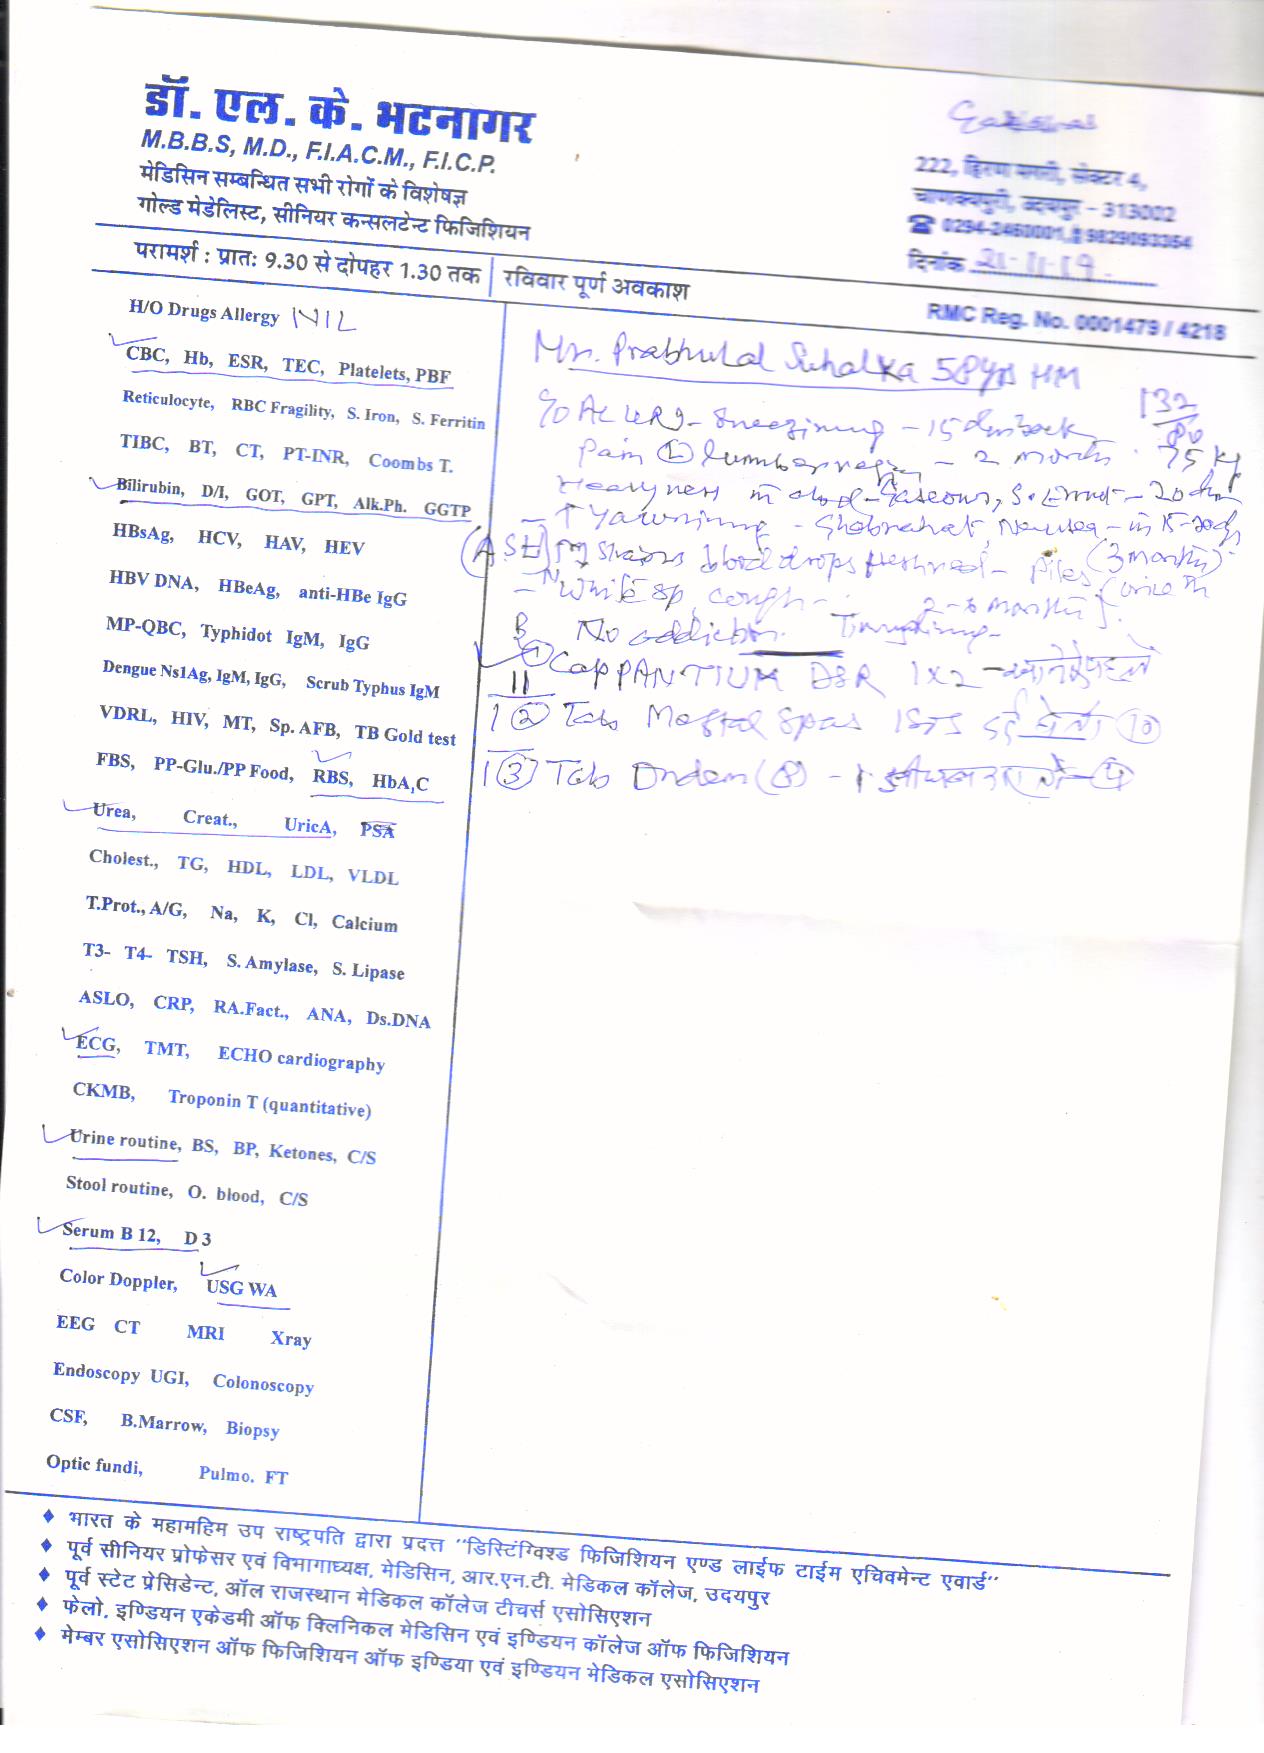 डॉ. एल. के. भटनागर
M.B.B.S, M.D., F.I.A.C.M., F.I.C.P.
मेडिसिन सम्बन्धित सभी रोगों के विशेषज्ञ
गोल्ड मेडेलिस्ट, सीनियर कन्सलटेन्ट फिजिशियन
222, हिरण मगरी, सेक्टर 4,
चाणक्यपुरी, उदयपुर - 313002
☎ 0294-2460001, 9829093364
दिनांक 21-11-19
परामर्श : प्रातः 9.30 से दोपहर 1.30 तक | रविवार पूर्ण अवकाश
RMC Reg. No. 0001479 / 4218
H/O Drugs Allergy NIL
CBC, Hb, ESR, TEC, Platelets, PBF
Reticulocyte, RBC Fragility, S. Iron, S. Ferritin
TIBC, BT, CT, PT-INR, Coombs T.
Bilirubin, D/I, GOT, GPT, Alk.Ph. GGTP
HBsAg, HCV, HAV, HEV
HBV DNA, HBeAg, anti-HBe IgG
MP-QBC, Typhidot IgM, IgG
Dengue Ns1Ag, IgM, IgG, Scrub Typhus IgM
VDRL, HIV, MT, Sp. AFB, TB Gold test
FBS, PP-Glu./PP Food, RBS, HbA,C
Urea, Creat., UricA, PSA
Cholest., TG, HDL, LDL, VLDL
T.Prot., A/G, Na, K, Cl, Calcium
T3- T4- TSH, S. Amylase, S. Lipase
ASLO, CRP, RA.Fact., ANA, Ds.DNA
ECG, TMT, ECHO cardiography
CKMB, Troponin T (quantitative)
Urine routine, BS, BP, Ketones, C/S
Stool routine, O. blood, C/S
Serum B 12, D 3
Color Doppler, USG WA
EEG CT MRI Xray
Endoscopy UGI, Colonoscopy
CSF, B.Marrow, Biopsy
Optic fundi, Pulmo. FT
Mr. Prabhulal Suhalka 58yrs HM
132/80
Sneezining - 15 back
Pain (L) lumbar region - 2 months 75 kg
Heavyness in Gaseous,
↑ Yawnining - Ghabrahat, Nausea - in 15-20 days
blood drops fresh red - Piles (3 months)
White sp, cough - 2-3 months
No addiction
① Cap PANTIUM DSR 1x2
② Tab Meftal Spas 10
③ Tab Ondem (8) - 1
♦ भारत के महामहिम उप राष्ट्रपति द्वारा प्रदत्त "डिस्टिंग्विश्ड फिजिशियन एण्ड लाईफ टाईम एचिवमेन्ट एवार्ड"
♦ पूर्व सीनियर प्रोफेसर एवं विभागाध्यक्ष, मेडिसिन, आर.एन.टी. मेडिकल कॉलेज, उदयपुर
♦ पूर्व स्टेट प्रेसिडेन्ट, ऑल राजस्थान मेडिकल कॉलेज टीचर्स एसोसिएशन
♦ फेलो, इण्डियन एकेडमी ऑफ क्लिनिकल मेडिसिन एवं इण्डियन कॉलेज ऑफ फिजिशियन
♦ मेम्बर एसोसिएशन ऑफ फिजिशियन ऑफ इण्डिया एवं इण्डियन मेडिकल एसोसिएशन